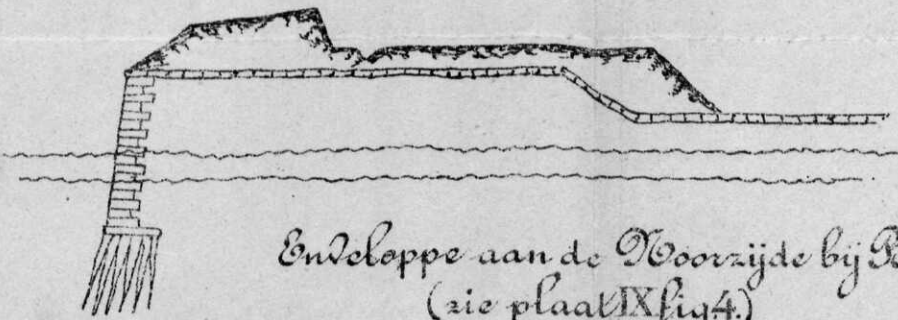 Enveloppe aan de Noorzijde bij
(zie plaat IX fig 4.)